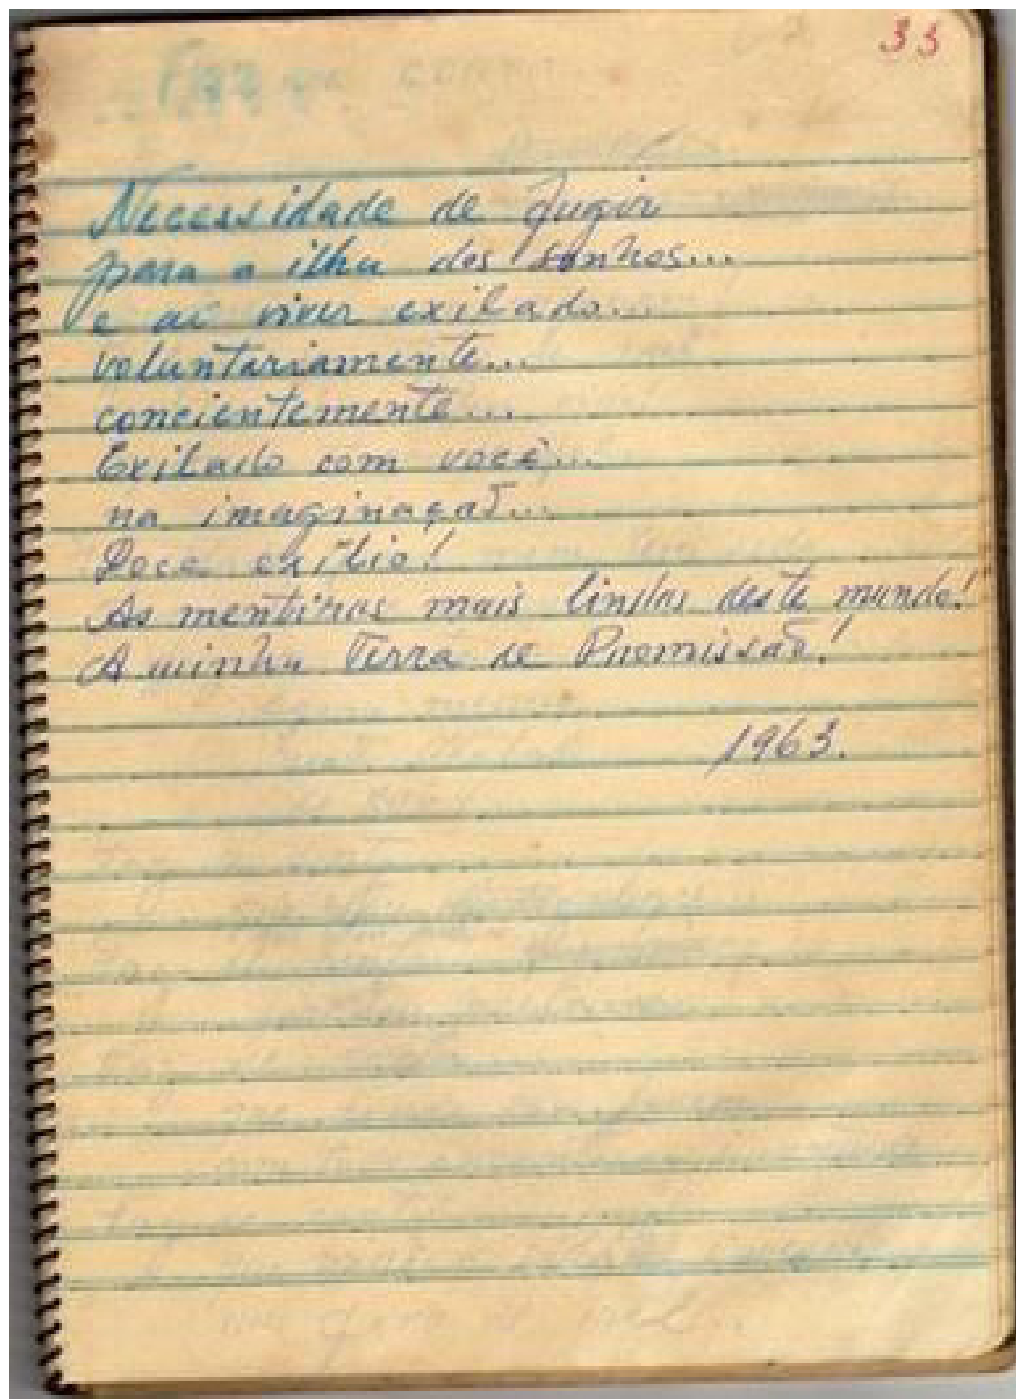 33
Necessidade de fugir
para a ilha dos sonhos...
e aí viver exilado...
voluntariamente...
concientemente...
Exilado com você...
na imaginação...
Doce exílio!
As mentiras mais lindas deste mundo!
A minha Terra de Promissão!
1963.